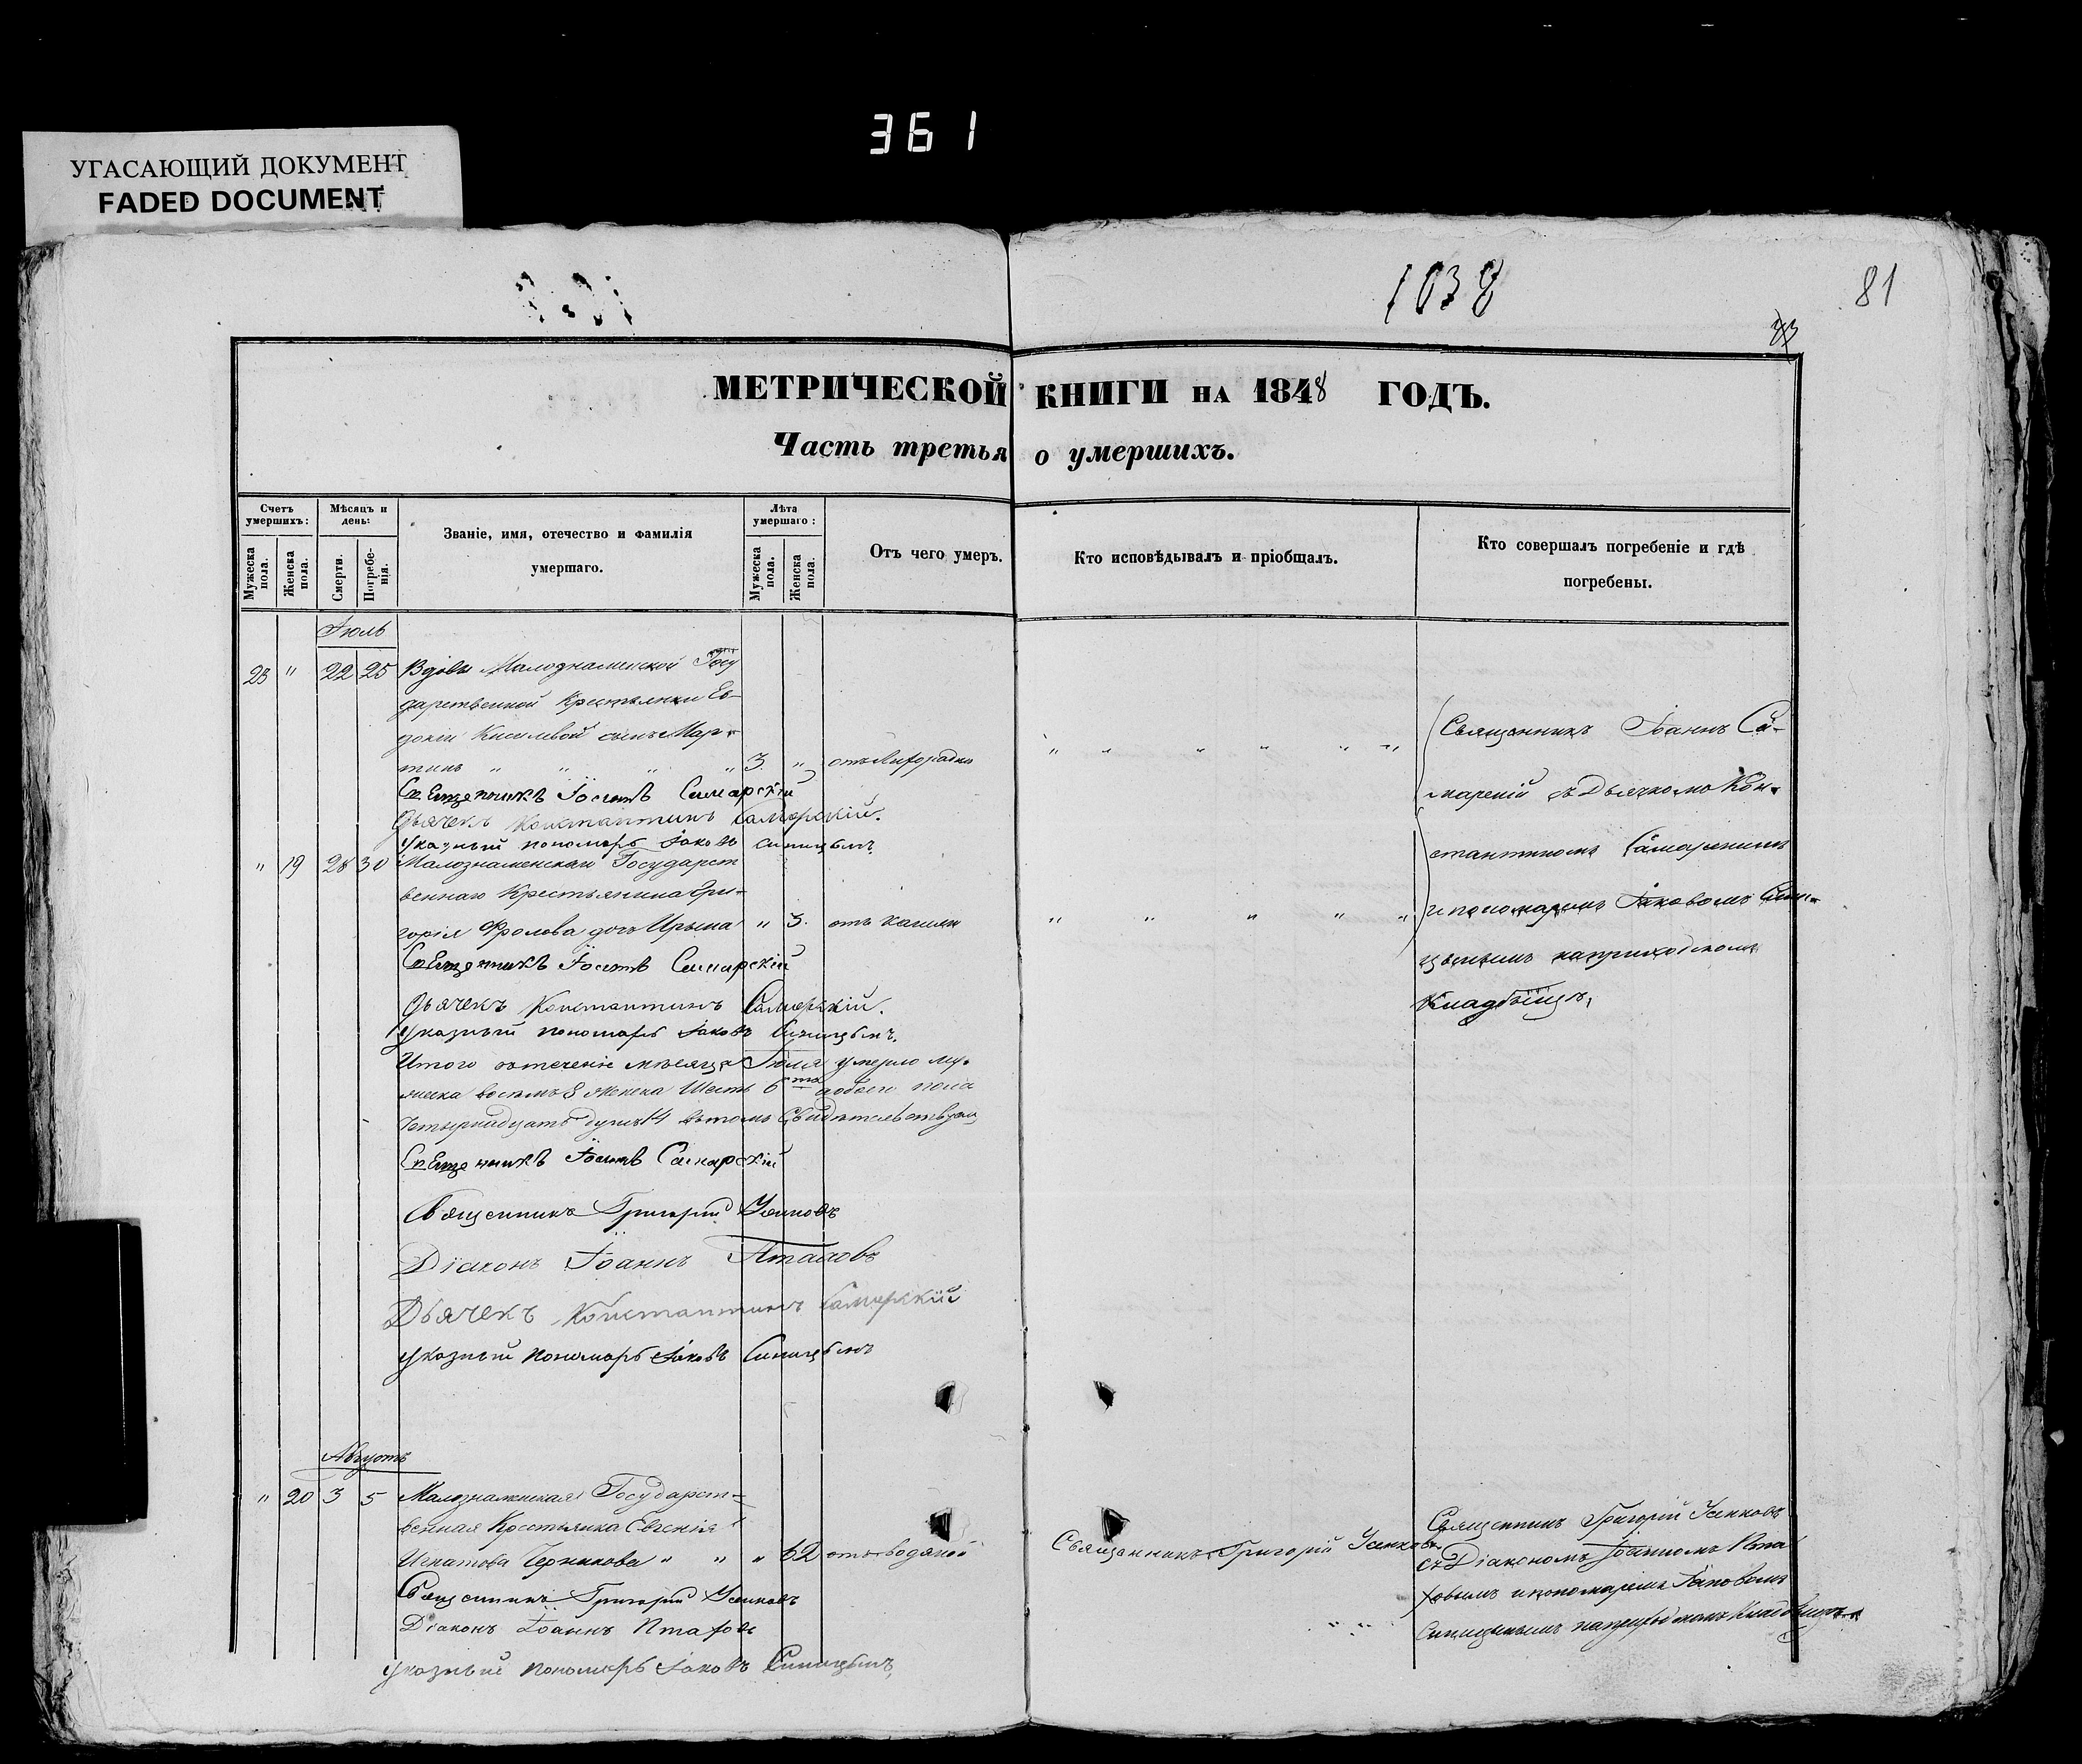 361
УГАСАЮЩИЙ ДОКУМЕНТ
FADED DOCUMENT
1038
81
МЕТРИЧЕСКОЙ КНИГИ НА 1848 ГОДЪ.
Часть третья о умершихъ.
Счетъ умершихъ:
Мужеска пола.
Женска пола.
Мѣсяцъ и день:
Смерти.
Погребенія.
Званіе, имя, отечество и фамилія
умершаго.
Лѣта умершаго:
Мужеска пола.
Женска пола.
Отъ чего умеръ.
Кто исповѣдывалъ и пріобщалъ.
Кто совершалъ погребеніе и гдѣ
погребены.
Іюль
23 " 22 25 Вдовы Малознаменской Госу
дарственной Крестьянки Ев-
докіи Киселевой сынъ Мар-
тинъ " " " " 3. " отъ Лихорадки " " " " " "
Священникъ Іоаннъ Самарскій
Дьячекъ Константинъ Самарскій.
Указный пономарь Іаковъ Синицынъ
" 19 28 30 Малознаменскаго Государст
веннаго Крестьянина Гри-
горія Фролова дочь Ирына " 3. отъ кашля " " " " "
Священникъ Іоаннъ Самарскій
Дьячекъ Константинъ Самарскій.
Указный пономарь Іаковъ Синицынъ.
Священникъ Іоаннъ Са-
марскій съ Дьячкомъ Кон-
стантиномъ Самарскимъ
и пономаремъ Іаковомъ Сини-
цынымъ на приходскомъ
Кладбищѣ,
Итого въ теченіе мѣсяца Іюля умерло му-
жеска восемь 8 женска Шесть 6 обоего пола
Четырнадцать душъ 14 въ томъ Свидѣтельствуемъ
Священникъ Іоаннъ Самарскій
Священникъ Григорій Усиковъ
Діаконъ Іоаннъ Птаховъ
Дьячекъ Константинъ Самарскій
указный пономарь Іаковъ Синицынъ
Августъ
" 20 3 5 Малознаменская Государст-
венная Крестьянка Евгенія
Игнатова " " " 62 отъ водяной Священникъ Григорій Усиковъ
Священникъ Григорій Усиковъ
Діаконъ Іоаннъ Птаховъ
указный пономарь Іаковъ Синицынъ,
Священникъ Григорій Усиковъ
съ Діакономъ Іоанномъ Пта
ховымъ и пономаремъ Іаковомъ
Синицынымъ на приходскомъ Кладбищѣ